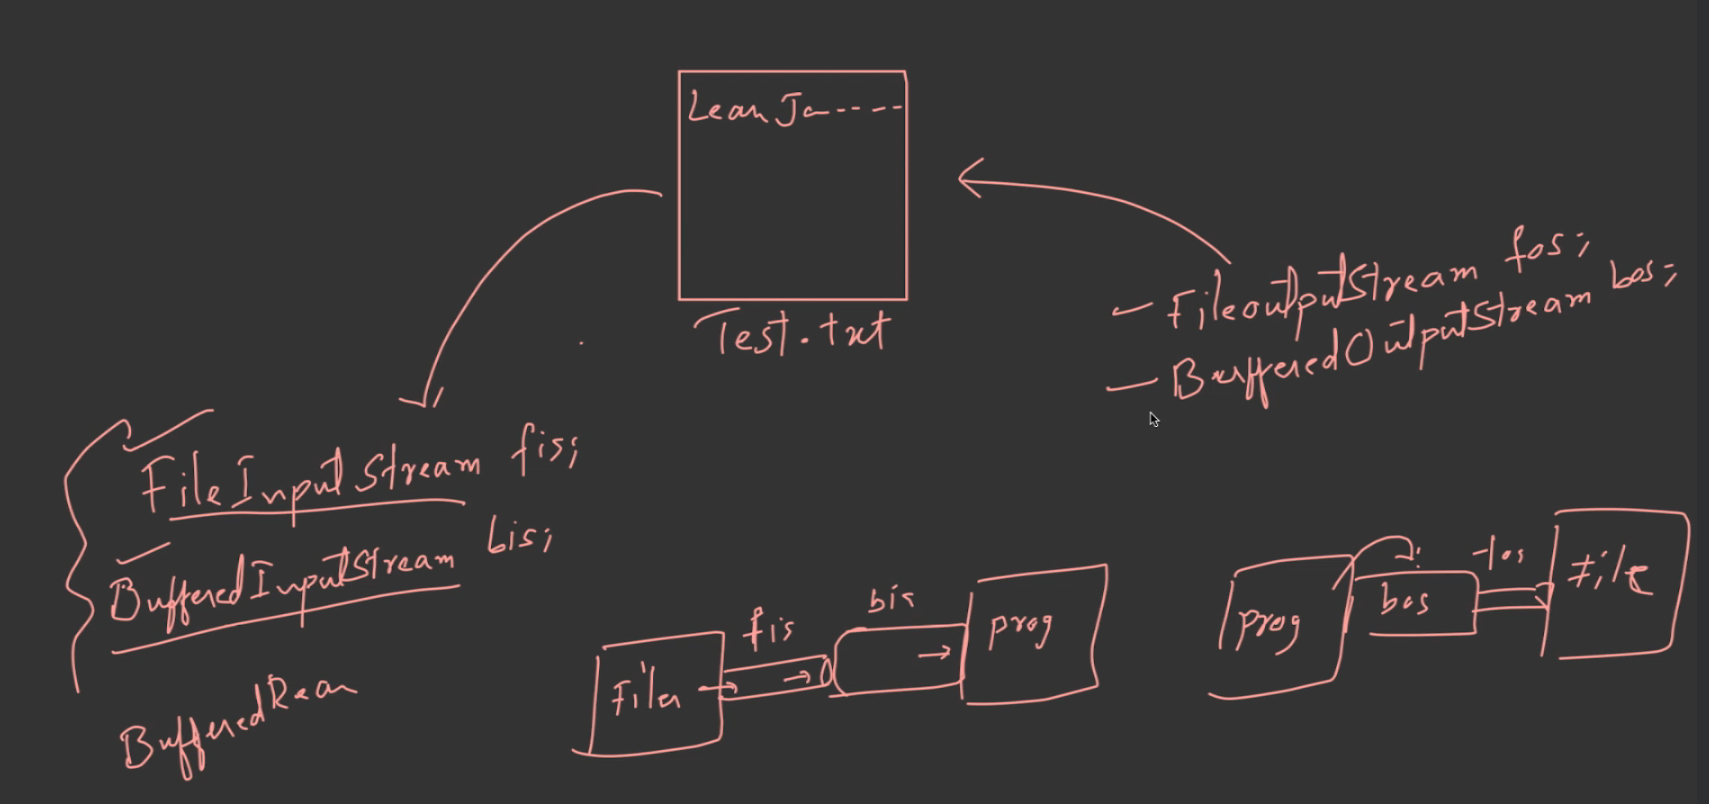 Lean Ja-----
Test.txt
- FileoutputStream fos;
- BufferedOutputStream bos;
FileInputStream fis;
BufferedInputStream bis;
BufferedRean
File
fis
bis
prog
prog
bos
fos
File